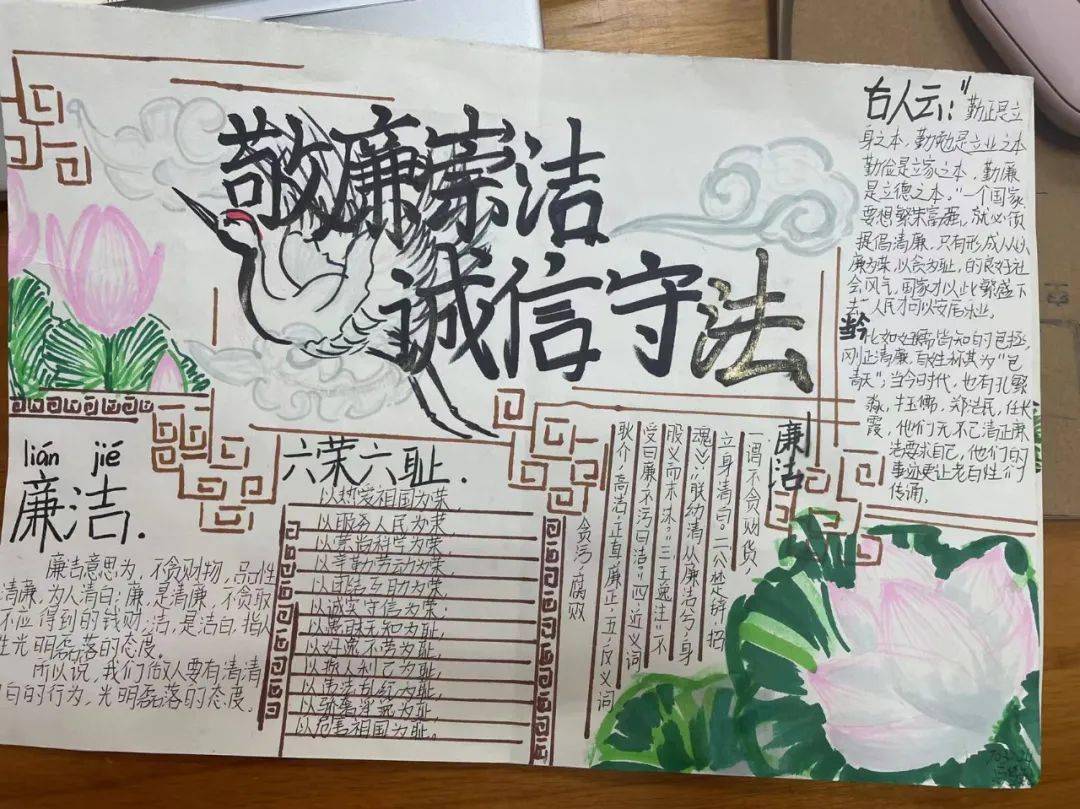 敬廉崇洁
诚信守法
古人云:"勤正是立
身之本,勤勉是立业之本
勤俭是立家之本,勤廉
是立德之本."一个国家,
要想繁荣富强,就必须
提倡清廉,只有形成人以
廉为荣,以贪为耻,的良好社
会风气,国家才以此繁盛下
去"人民才可以安居乐业。
当今
比如妇孺皆知的包拯,
刚正清廉,百姓称其为"包
青天";当今时代,也有孔繁
淼,牛玉儒,郑法民,任长
霞,他们无不已清正廉
洁要求自己,他们的
事迹更让老百姓们
传诵。
lián jié
廉洁.
廉洁意思为,不贪财物,品性
清廉,为人清白;廉,是清廉,不贪取
不应得到的钱财.洁,是洁白,指人
性光明磊落的态度。
所以说,我们做人要有清清
白白的行为,光明磊落的态度。
六荣六耻.
以热爱祖国为荣,
以服务人民为荣,
以崇尚科学为荣,
以辛勤劳动为荣,
以团结互助为荣,
以诚实守信为荣;
以愚昧无知为耻,
以好逸不劳为耻,
以损人利己为耻,
以违法乱纪为耻,
以骄奢淫逸为耻,
以危害祖国为耻。
廉洁
一谓不贪财货,
立身清白.二〈楚辞·招
魂〉:"朕幼清以廉洁兮,身
服义而未沫."三王逸注"不
受曰廉不污曰洁"四、近义词
耿介,高洁,正直,廉正,五、反义词
贪污,腐败